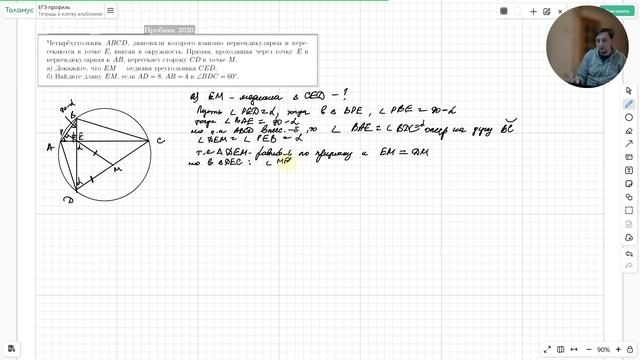 Таламус
ЕГЭ профиль
Тетрадь в клетку альбомная
Пробник 2020
Четырёхугольник ABCD, диагонали которого взаимно перпендикулярны и пере-
секаются в точке E, вписан в окружность. Прямая, проходящая через точку E и
перпендикулярная к AB, пересекает сторону CD в точке M.
а) Докажите, что EM — медиана треугольника CED.
б) Найдите длину EM, если AD = 8, AB = 4 и ∠BDC = 60°.
а) EM – медиана △ CED – ?
Пусть ∠ PED = α, тогда в △ BPE, ∠ PBE = 90-α
тогда ∠ BAE = 90-α
но т.к ABCD впис. то ∠ BAE = ∠ BDC = α опир на дугу BC
∠ DEM = ∠ PEB = α
т.е △ DEM - равноб по признаку и EM = DM
но в △ DEC : ∠ ME
90-α
B
A
E
C
α
M
D
90%